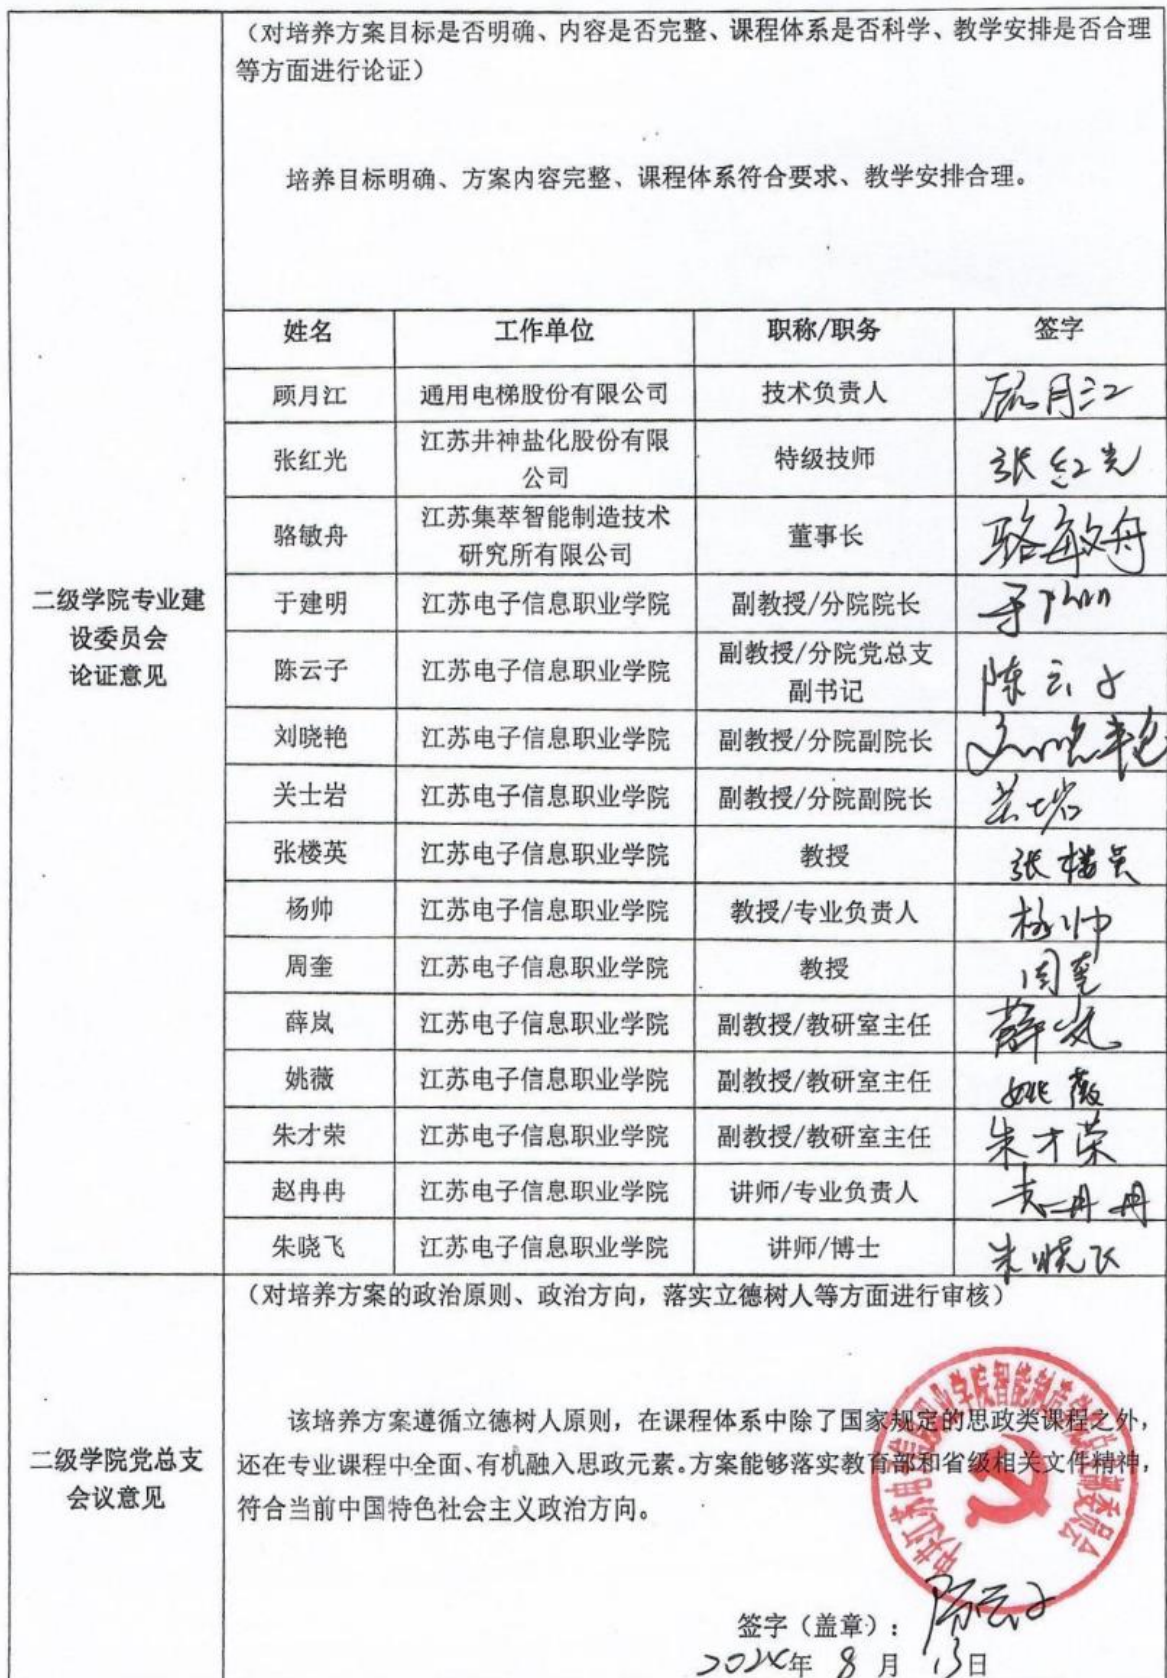 (对培养方案目标是否明确、内容是否完整、课程体系是否科学、教学安排是否合理
等方面进行论证)
培养目标明确、方案内容完整、课程体系符合要求、教学安排合理。
姓名 工作单位 职称/职务 签字
顾月江 通用电梯股份有限公司 技术负责人 顾月江
张红光 江苏井神盐化股份有限
公司 特级技师 张红光
骆敏舟 江苏集萃智能制造技术
研究所有限公司 董事长 骆敏舟
二级学院专业建
设委员会
论证意见
于建明 江苏电子信息职业学院 副教授/分院院长
陈云子 江苏电子信息职业学院 副教授/分院党总支
副书记 陈云子
刘晓艳 江苏电子信息职业学院 副教授/分院副院长 刘晓艳
关士岩 江苏电子信息职业学院 副教授/分院副院长 关士岩
张楼英 江苏电子信息职业学院 教授 张楼英
杨帅 江苏电子信息职业学院 教授/专业负责人 杨帅
周奎 江苏电子信息职业学院 教授 周奎
薛岚 江苏电子信息职业学院 副教授/教研室主任 薛岚
姚薇 江苏电子信息职业学院 副教授/教研室主任 姚薇
朱才荣 江苏电子信息职业学院 副教授/教研室主任 朱才荣
赵冉冉 江苏电子信息职业学院 讲师/专业负责人
朱晓飞 江苏电子信息职业学院 讲师/博士 朱晓飞
二级学院党总支
会议意见
(对培养方案的政治原则、政治方向，落实立德树人等方面进行审核)
该培养方案遵循立德树人原则，在课程体系中除了国家规定的思政类课程之外，
还在专业课程中全面、有机融入思政元素。方案能够落实教育部和省级相关文件精神，
符合当前中国特色社会主义政治方向。
中共江苏电子信息职业学院智能制造学院总支部委员会
签字（盖章）: 陈云子
年 8 月 13日